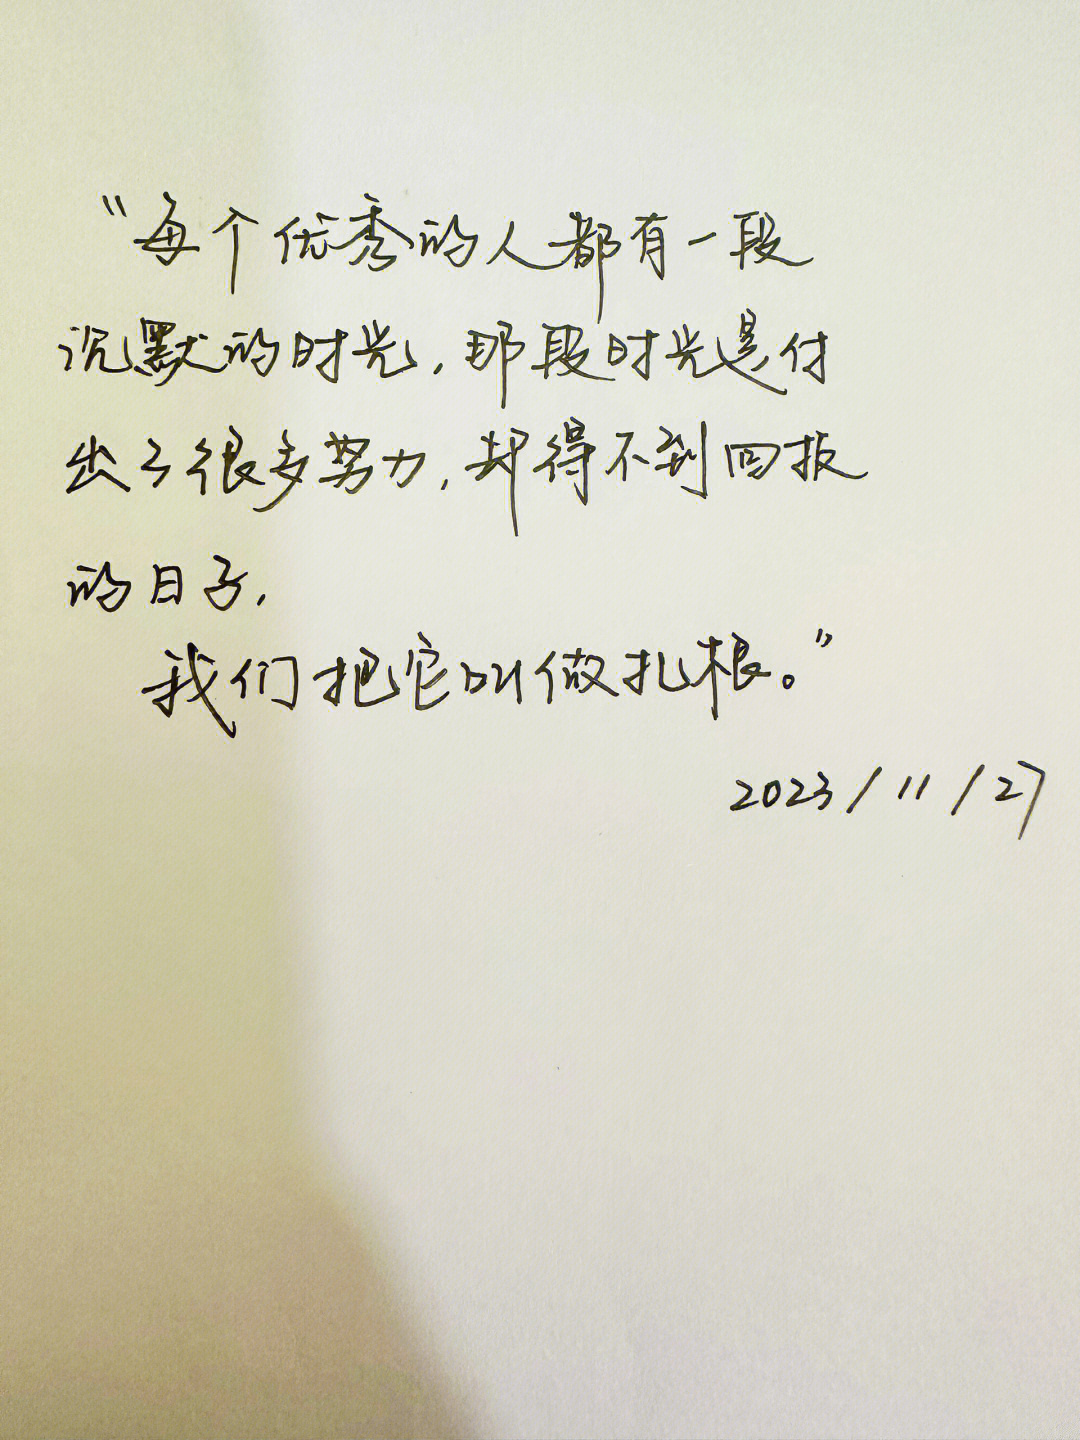 “每个优秀的人都有一段
沉默的时光，那段时光是付
出了很多努力，却得不到回报
的日子，
我们把它叫做扎根。”
2023/11/27